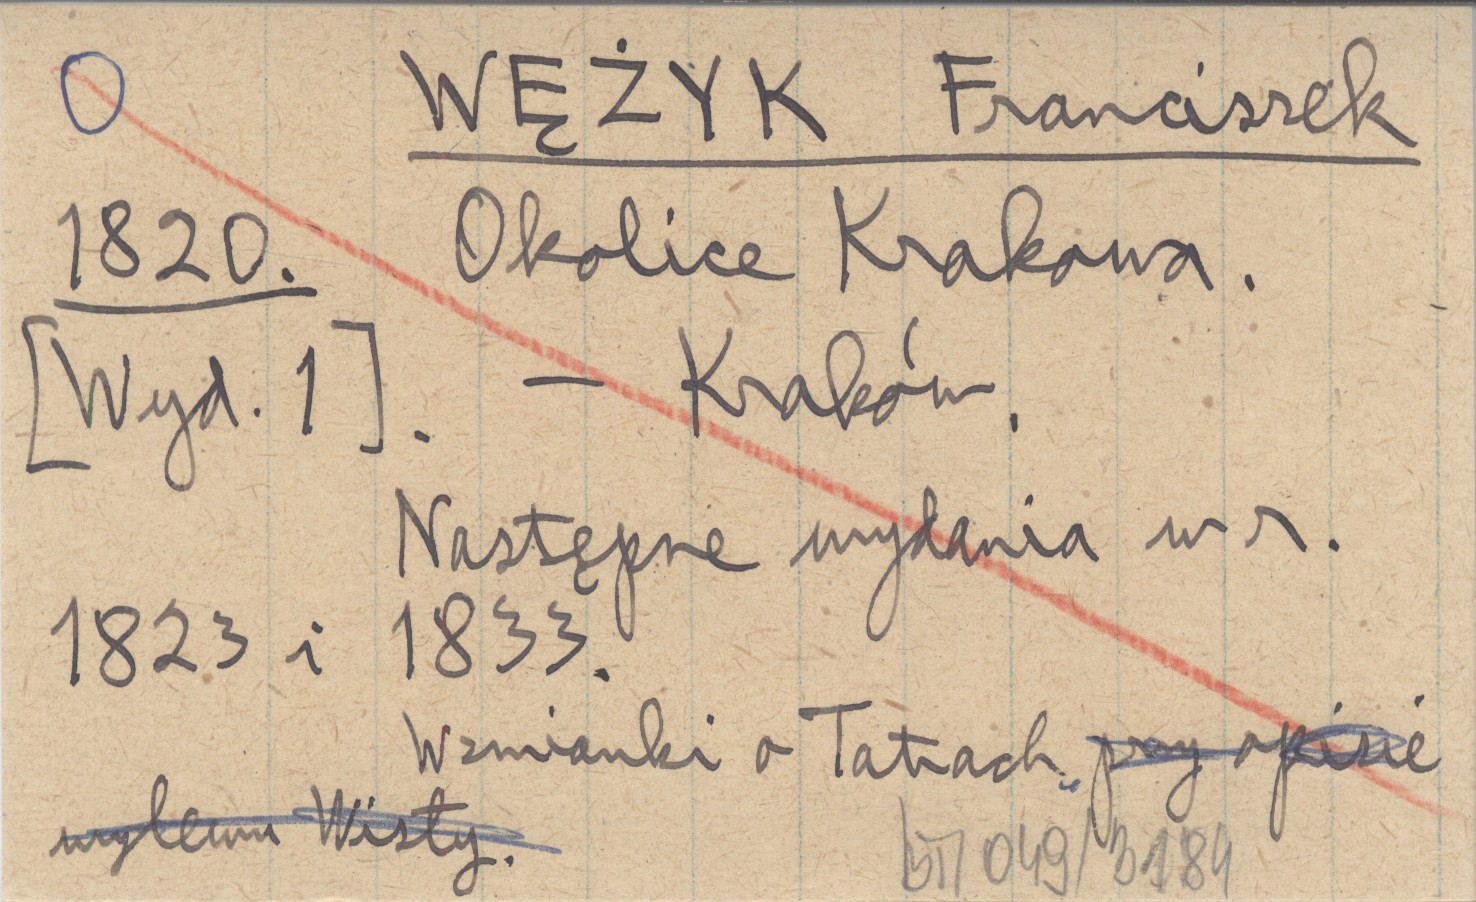 O WĘŻYK Franciszek
1820. Okolice Krakowa.
[Wyd. 1]. – Kraków.
Następne wydania w r.
1823 i 1833.
Wzmianki o Tatrach przy opisie
wylewu Wisły.
049/3184